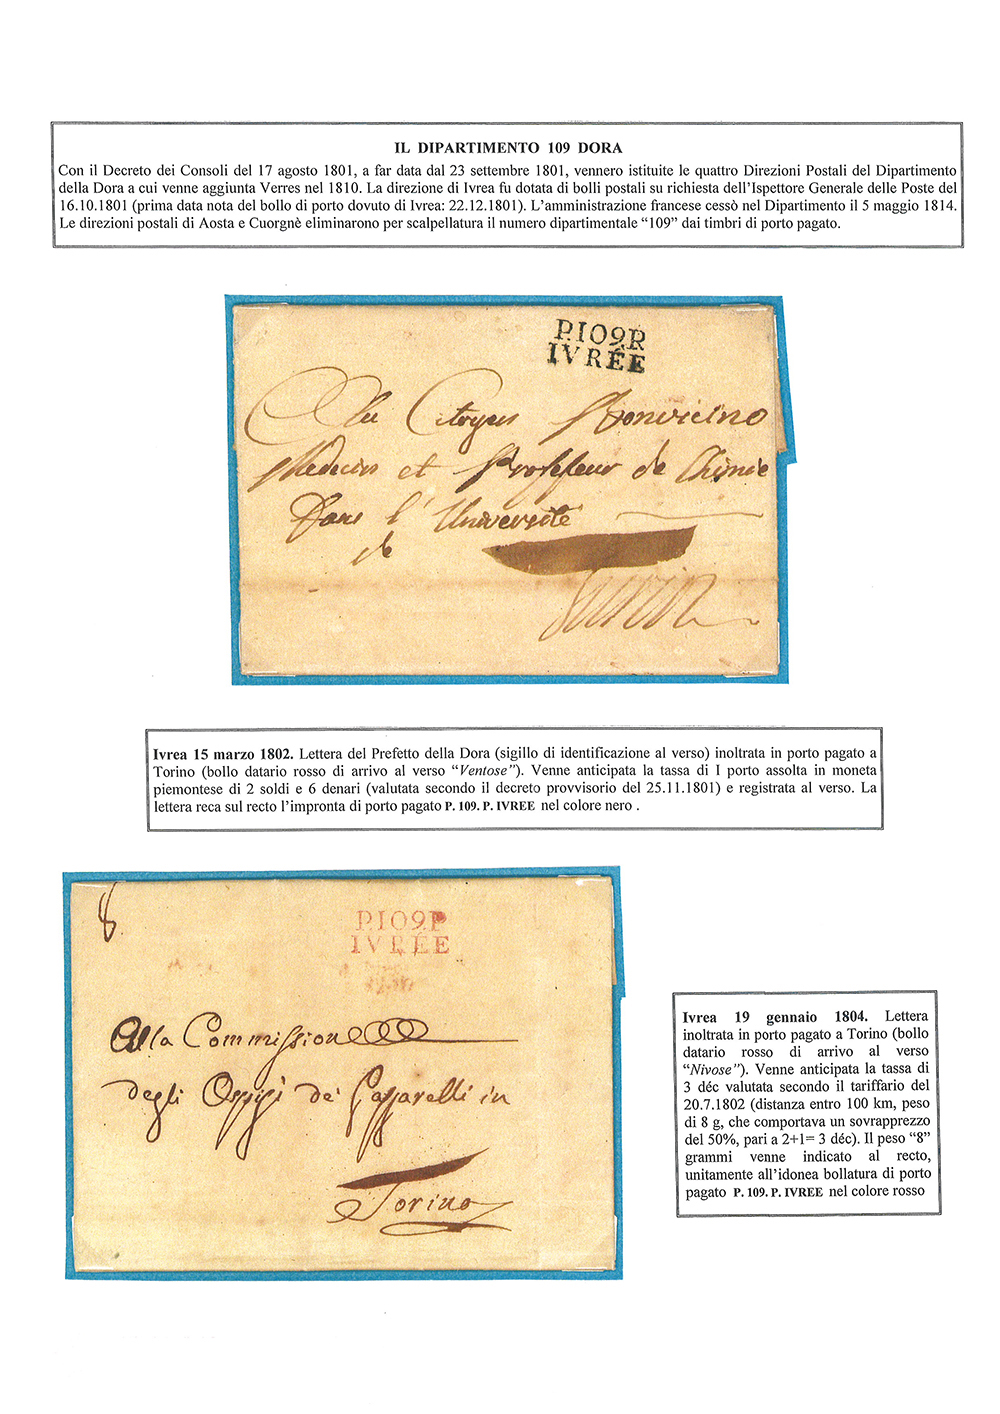 IL DIPARTIMENTO 109 DORA
Con il Decreto dei Consoli del 17 agosto 1801, a far data dal 23 settembre 1801, vennero istituite le quattro Direzioni Postali del Dipartimento
della Dora a cui venne aggiunta Verres nel 1810. La direzione di Ivrea fu dotata di bolli postali su richiesta dell’Ispettore Generale delle Poste del
16.10.1801 (prima data nota del bollo di porto dovuto di Ivrea: 22.12.1801). L’amministrazione francese cessò nel Dipartimento il 5 maggio 1814.
Le direzioni postali di Aosta e Cuorgnè eliminarono per scalpellatura il numero dipartimentale “109” dai timbri di porto pagato.
P.109.P
IVRÉE
Au Citoyen Bonvicino
Medecin et Professeur de Chimie
Dans l'Université
de
Turin
Ivrea 15 marzo 1802. Lettera del Prefetto della Dora (sigillo di identificazione al verso) inoltrata in porto pagato a
Torino (bollo datario rosso di arrivo al verso “Ventose”). Venne anticipata la tassa di I porto assolta in moneta
piemontese di 2 soldi e 6 denari (valutata secondo il decreto provvisorio del 25.11.1801) e registrata al verso. La
lettera reca sul recto l’impronta di porto pagato P. 109. P. IVREE nel colore nero .
8
P.109.P
IVRÉE
Alla Commissione
degli Ospizj de' Gassarelli in
Torino
Ivrea 19 gennaio 1804. Lettera
inoltrata in porto pagato a Torino (bollo
datario rosso di arrivo al verso
“Nivose”). Venne anticipata la tassa di
3 déc valutata secondo il tariffario del
20.7.1802 (distanza entro 100 km, peso
di 8 g, che comportava un sovrapprezzo
del 50%, pari a 2+1= 3 déc). Il peso “8”
grammi venne indicato al recto,
unitamente all’idonea bollatura di porto
pagato P. 109. P. IVREE nel colore rosso